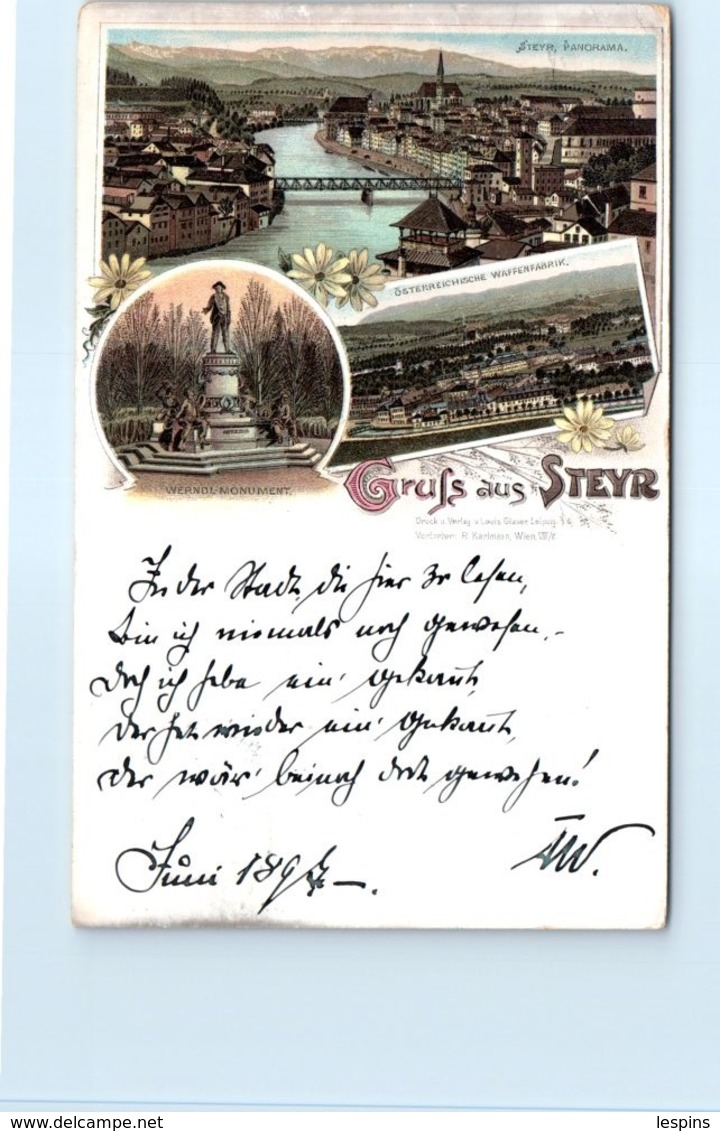 STEYR, PANORAMA.
ÖSTERREICHISCHE WAFFENFABRIK.
WERNDL-MONUMENT.
Gruß aus STEYR
Druck u. Verlag v. Louis Glaser, Leipzig.
Vertreter: R. Karlmann, Wien VII/2.
In der Stadt, die hier zu lesen,
bin ich niemals noch gewesen,-
Doch ich habe ein' gekannt,
der hat wieder ein' gekannt,
der wär' beinah dort gewesen!
Juni 189
lespins